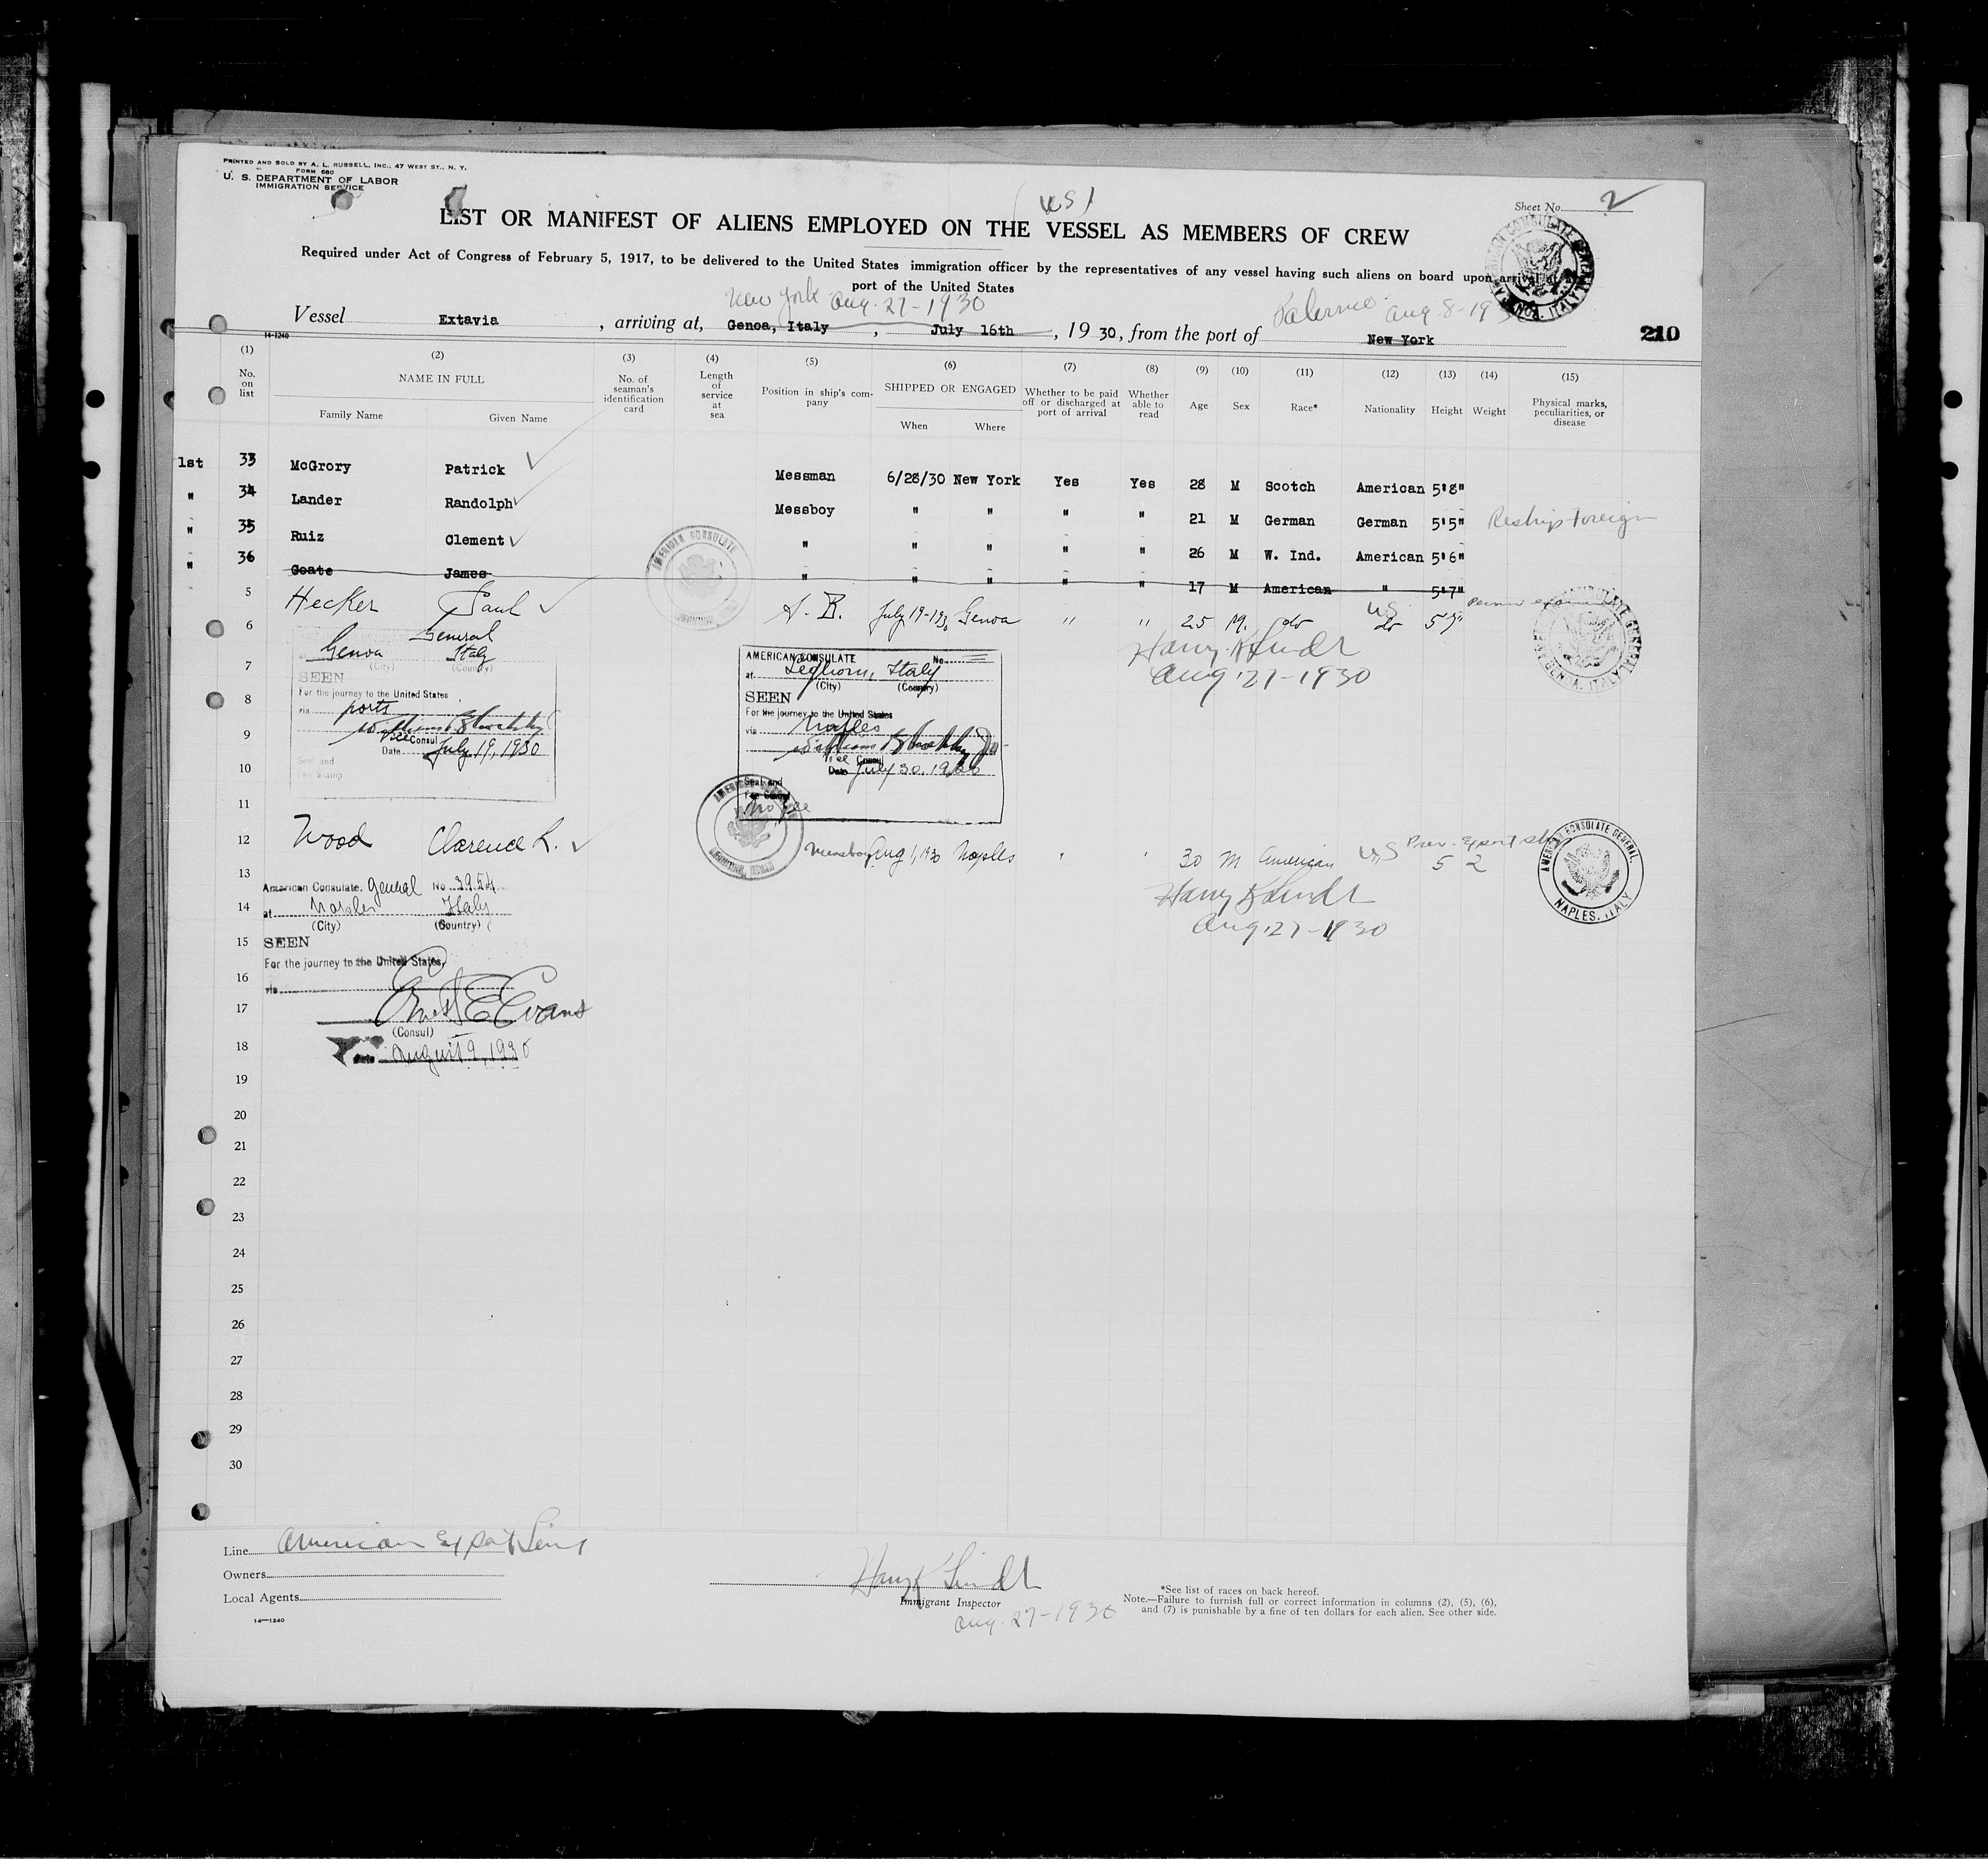 PRINTED AND SOLD BY A. L. RUSSELL, INC., 47 WEST ST., N. Y.
FORM 680
U. S. DEPARTMENT OF LABOR
IMMIGRATION SERVICE
(US)
Sheet No. 2
LIST OR MANIFEST OF ALIENS EMPLOYED ON THE VESSEL AS MEMBERS OF CREW
Required under Act of Congress of February 5, 1917, to be delivered to the United States immigration officer by the representatives of any vessel having such aliens on board upon arrival at a
port of the United States
New York Aug. 27-1930 Palermo Aug. 8-19
Vessel Extavia, arriving at, Genoa, Italy, July 16th, 1930, from the port of New York
14-1240
210
(1) (2) (3) (4) (5) (6) (7) (8) (9) (10) (11) (12) (13) (14) (15)
No. on list
NAME IN FULL
Family Name Given Name
No. of seaman's identification card
Length of service at sea
Position in ship's company
SHIPPED OR ENGAGED
When Where
Whether to be paid off or discharged at port of arrival
Whether able to read
Age Sex Race* Nationality Height Weight
Physical marks, peculiarities, or disease
1st 33 McGrory Patrick Messman 6/28/30 New York Yes Yes 28 M Scotch American 5'8"
" 34 Lander Randolph Messboy " " " " 21 M German German 5'5" Reship Foreign
" 35 Ruiz Clement " " " " " 26 M W. Ind. American 5'6"
" 36 Goate James " " " " " 17 M American " 5'7"
5 Hecker Paul A. B. July 19-1930 Genoa " " 25 M. do US do 5 7"
6 General
Genoa Italy
(City) (Country)
7
SEEN
For the journey to the United States
via ports
8
9
Vice Consul
Date July 19, 1930
10
Seal and
Fee Stamp
Harry K Lindt
Aug 27-1930
AMERICAN CONSULATE No.
at Leghorn, Italy
(City) (Country)
SEEN
For the journey to the United States
via Naples
Vice Consul
Date July 30, 1930
Seal and
Fee Stamp
No fee
AMERICAN CONSULATE
AMERICAN CONSULATE GENERAL
GENOA, ITALY
11
12 Wood Clarence L. Messboy Aug 1, 1930 Naples " " 30 M American US 5 2
AMERICAN CONSULATE GENERAL.
NAPLES, ITALY
Harry K Lindt
Aug 27-1930
13
American Consulate. General No. 3954
14
at Naples Italy
(City) (Country)
15
SEEN
For the journey to the United States,
16
via
17
Evans
(Consul)
18
Date August 9, 1930
19
20
21
22
23
24
25
26
27
28
29
30
Line American Export Lines
Owners
Local Agents
14-1240
Harry K Lindt
Immigrant Inspector
Aug. 27-1930
*See list of races on back hereof.
Note.—Failure to furnish full or correct information in columns (2), (5), (6),
and (7) is punishable by a fine of ten dollars for each alien. See other side.